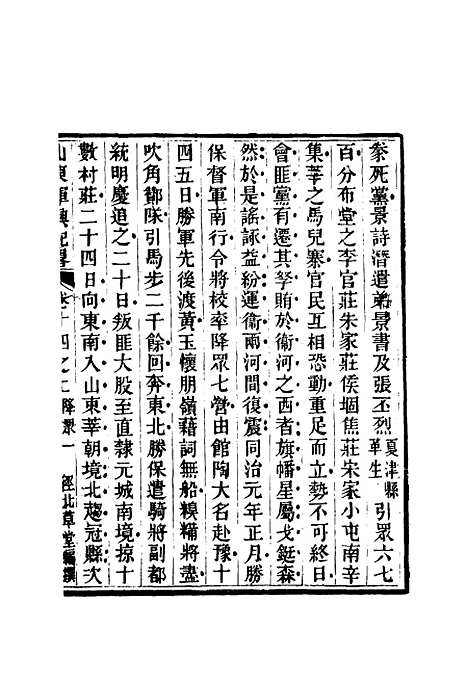 黍死黨景詩潛遣弟景書及張丕烈夏津縣革生引眾六七
百分布堂之李官莊朱家莊侯堌焦莊宋家小屯南辛
集莘之馬兒寨官民互相恐動重足而立勢不可終日
會匪黨有遷其孥賄於衞河之西者旗幡星屬戈鋋森
然於是謠諑益紛運衞兩河間復震同治元年正月勝
保督軍南行令將校率降眾七營由館陶大名赴豫十
四五日勝軍先後渡黃玉懷朋嶺藉詞無船糗糒將盡
吹角鄒隊引馬步二千餘回奔東北勝保遣騎將副都
統明慶追之二十日叛匪大股至直隸元城南境掠十
數村莊二十四日向東南入山東莘朝境北趨冠縣次
山東軍興紀畧 卷十四之二 降眾一 經北草堂編撰